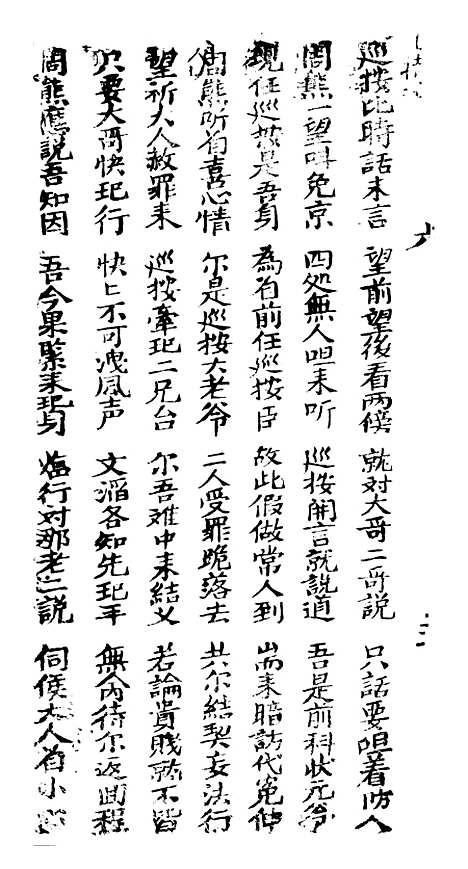 巡按比時話未言 望前望後看兩傍 就对大哥二哥説 只話要咀着防人
周熊一望叫免京 四処無人咀耒听 巡按開言就説道 吾是前科状元爷
現任巡按是吾身 為有前任巡按臣 故此假做常人到 耒暗訪代冤伸
周熊听有喜心情 尔是巡按大老爷 二人受罪跪落去 共尔結契妄法行
望祈大人赦罪耒 巡按牽起二兄台 尔吾难中耒結义 若論貴賤就不皆
只要大哥快起行 快上不可洩風声 文滔各知先起 無内待尔返回程
周熊應説吾知因 吾今果緊耒起身 临行对那老二説 伺侯大人有小